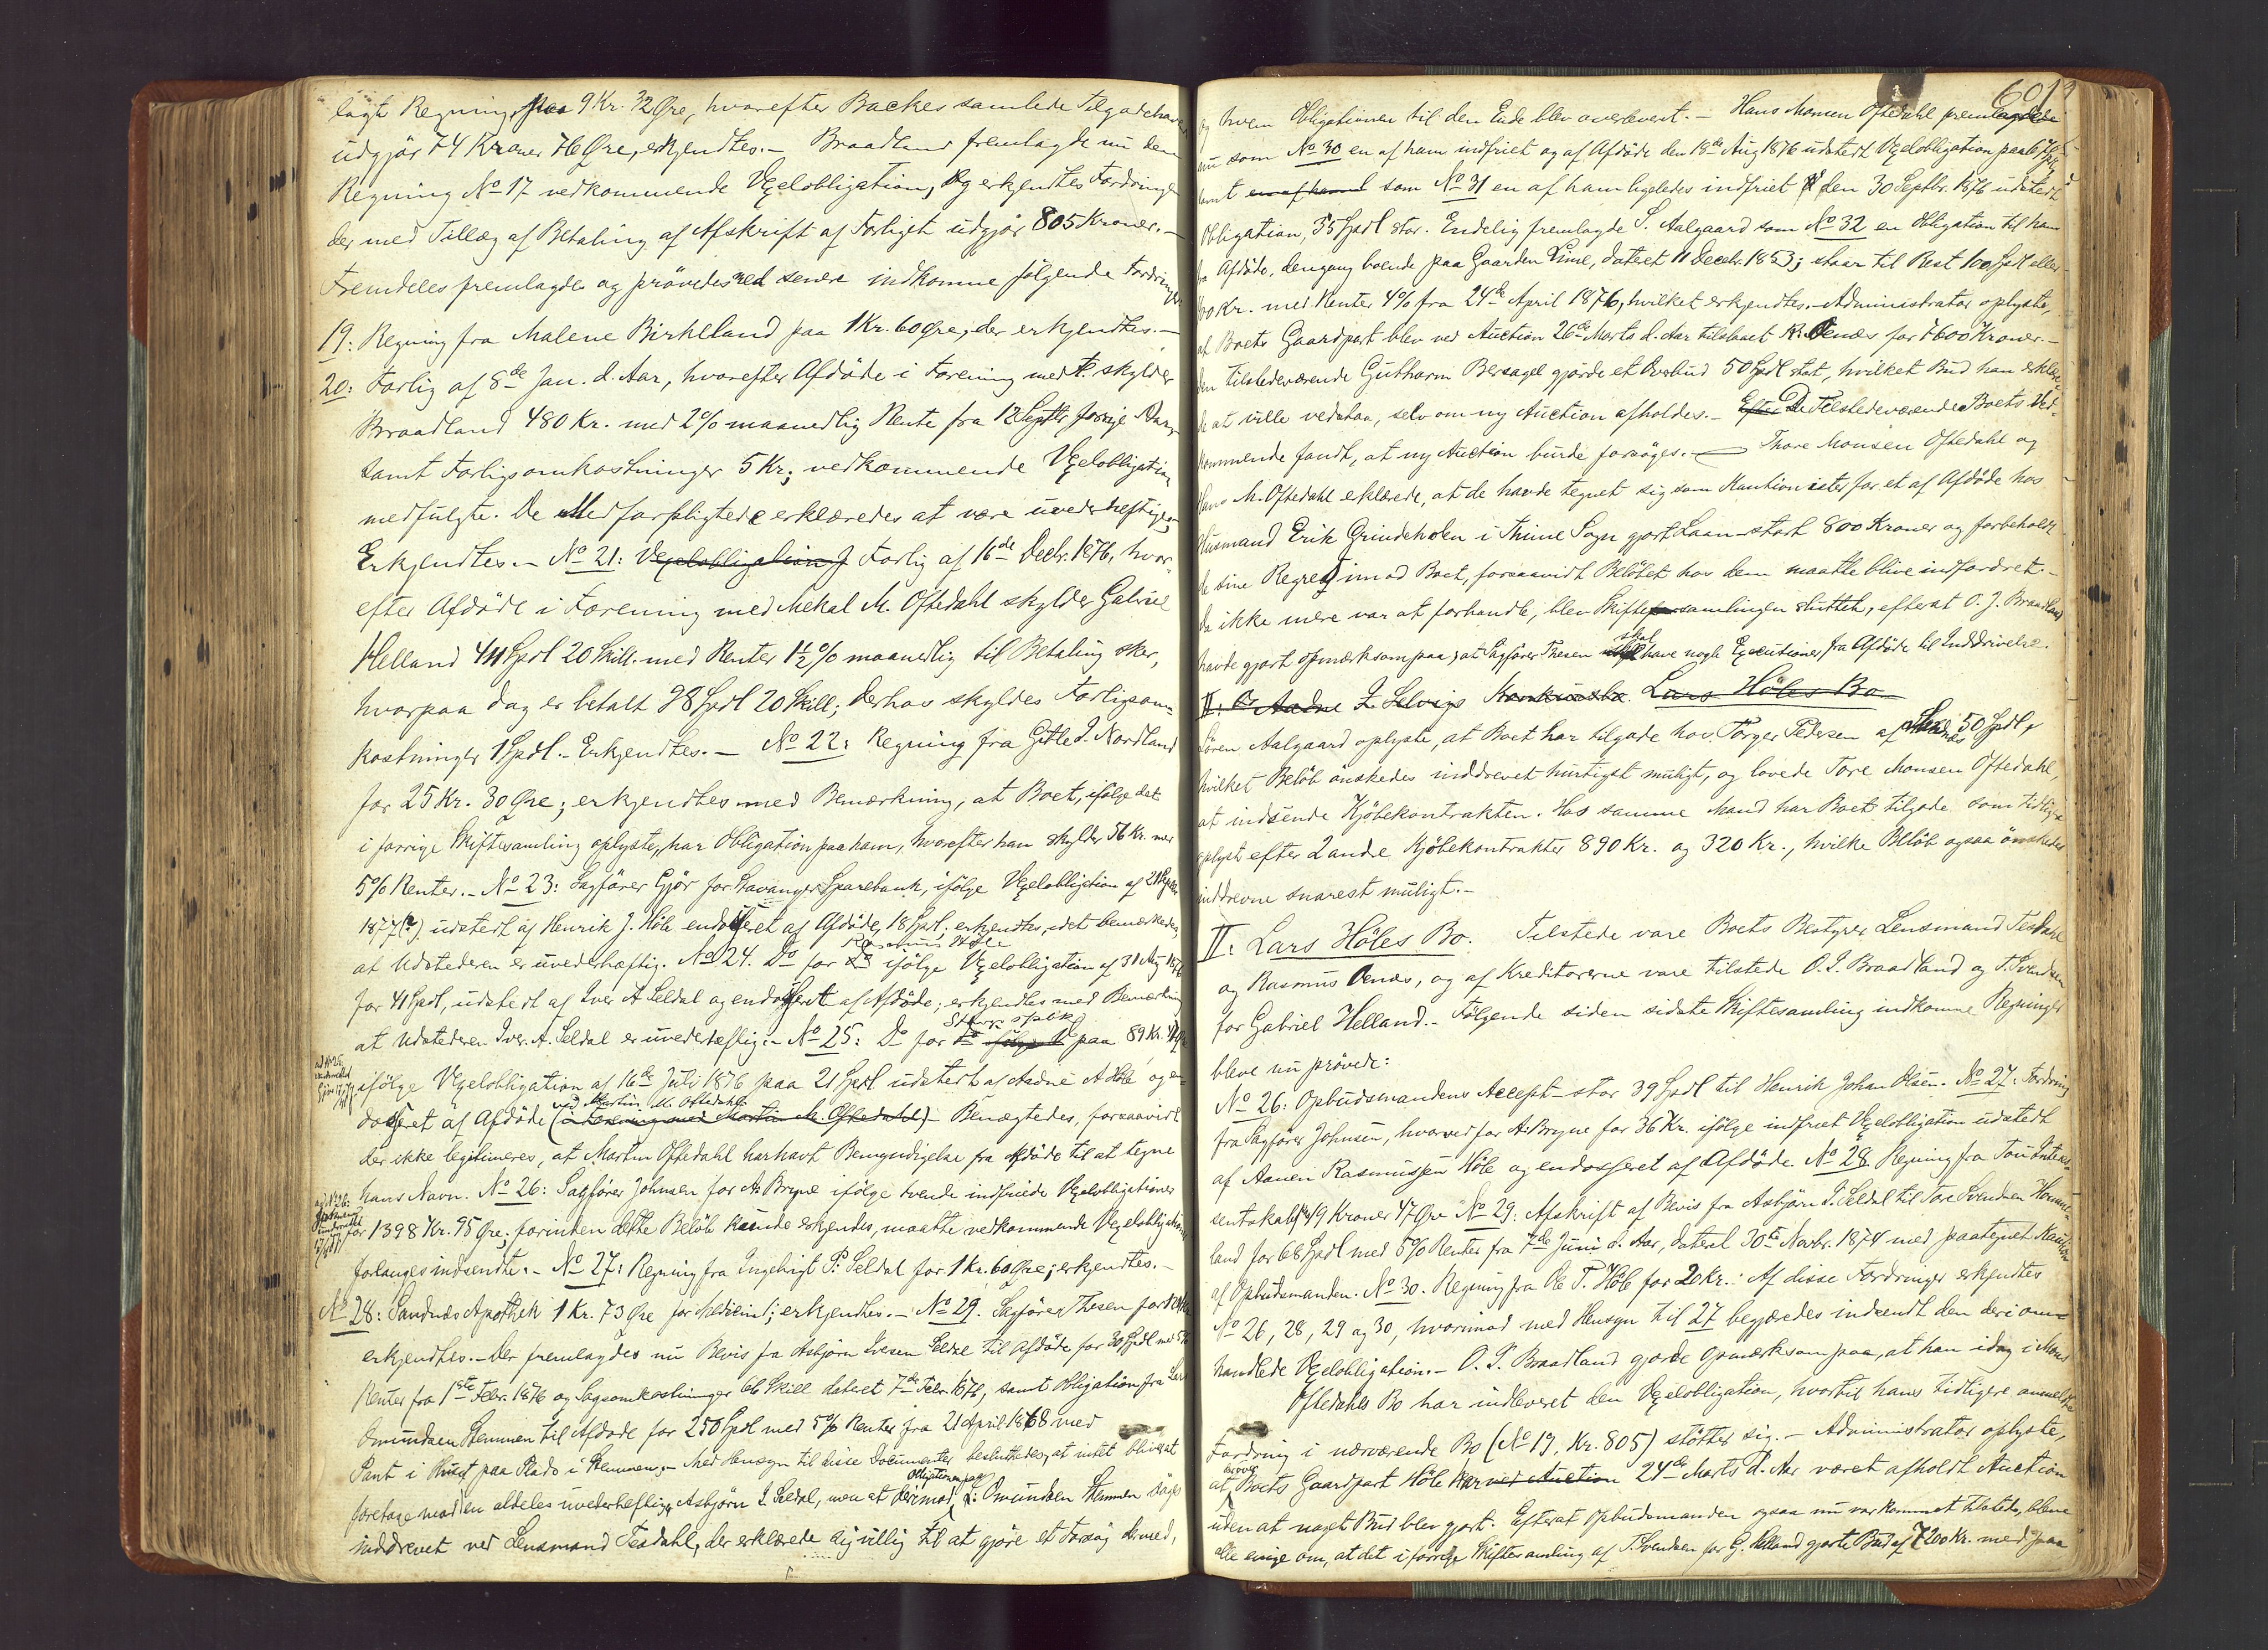 lagt Regning paa 9 Kr. 32 Øre, hvorefter Backes samlede Tilgodehavende
udgjør 74 Kroner 76 Øre, erkjendtes.— Braadland fremlagde nu den
Regning No 17 vedkommende Vexelobligation, og erkjendtes Fordringen
der med Tillæg af Betaling af Afskrift af Forliget udgjør 805 Kroner.—
Fremdeles fremlagdes og prøvedes ved senere indkomne følgende Fordringer
19: Regning fra Malene Birkeland paa 1 Kr. 60 Øre, der erkjendtes.—
20: Forlig af 8de Jan. d. Aar, hvorefter Afdøde i Forening med P. skylder
Braadland 480 Kr. med 2% maanedlig Rente fra 12 Septbr. forrige Aar,
samt Forligsomkostninger 5 Kr.; vedkommende Vexelobligation
medfulgte. De Medforpligtede erklæredes at være uvederheftige,
Erkjendtes.— No 21: Vexelobligation f Forlig af 16de Decbr. 1876, hvor-
efter Afdøde i Forening med Mekal M. Oftedahl skylder Gabriel
Helland 411 Spdl 20 Skill. med Renter 1½% maanedlig til Betaling sker,
hvorpaa dog er betalt 98 Spdl 20 Skill; derhos skyldes Forligsom-
kostninger 1 Spdl.— Erkjendtes.— No 22: Regning fra Gitle I. Nordland
for 25 Kr. 30 Øre; erkjendtes med Bemærkning, at Boet, ifølge det
i forrige Skiftesamling oplyste, har Obligation paa ham, hvorefter han skylder 56 Kr. med
5% Renter.— No 23: Sagfører Gjør for Stavanger Sparebank, ifølge Vexelobligation af 21
1877(?) udstedt af Henrik J. Høle endosseret af Afdøde, 18 Spdl; erkjendtes, idet bemærkedes,
Rasmus Høle
at Udstederen er uvederhæftig. No 24. Do for Do ifølge Vexelobligation af 31 Aug 1876
for 41 Spdl, udstedt af Iver A Seldal og endosseret af Afdøde; erkjendtes med Bemærkning
at Udstederen Iver A. Seldal er uvederhæftig.— No 25: Do for Do ifølge V paa 89 Kr.
ifølge Vexelobligation af 16de Juli 1876 paa 21 Spdl udstedt af Aadne A Høle og en-
ved Martin M. Oftedahl
dosseret af Afdøde (i Forening med Martin M. Oftedahl)— Benægtedes, forsaavidt
der ikke legitimeres, at Martin Oftedahl har havt Bemyndigelse fra Afdøde til at tegne
hans Navn. No 26: Sagfører Johnsen for A. Bryne ifølge tvende indfriede Vexelobligationer
for 1398 Kr. 95 Øre; forinden dette Beløb kunde erkjendes, maatte vedkommende Vexelobligationer
forlanges indsendte.— No 27: Regning fra Ingebrigt P. Seldal for 1 Kr. 60 Øre; erkjendtes.—
No 28: Sandnæs Apothek 1 Kr. 73 Øre for Medicin; erkjendtes.— No 29. Sagfører Thesen for
erkjendtes.— Der fremlagdes nu Bevis fra Asbjørn Iversen Seldal til Afdøde for 30 Spdl med 5%
Renter fra 1ste Febr. 1876 og Sagsomkostninger 66 Skill dateret 7de Febr. 1876, samt Obligation fra
Omundsen Stemmen til Afdøde for 250 Spdl med 5% Renter fra 21 April 1868 med
Pant i Huset paa Plads i Stemmen.— Med Hensyn til disse Documenter besluttedes, at intet blive at
Obligationen paa
foretage mod den aldeles uvederheftige Asbjørn I. Seldal, men at derimod L. Omundsen Stemmen søges
inddrevet ved Lensmand Tesdahl, der erklærede sig villig til at gjøre et Forsøg dermed,
601
og hvem Obligationen til den Ende blev overleveret.— Hans Monsen Oftedahl fremlagde
nu som No 30 en af ham indfriet og af Afdøde den 18de Aug 1876 udstedt Vexelobligation paa
samt en af ham som No 31 en af ham ligeledes indfriet den 30 Septbr. 1876 udstedt
Obligation, 35 Spdl stor. Endelig fremlagde S. Aalgaard som No 32 en Obligation til ham
fra Afdøde, dengang boende paa Gaarden Lime, dateret 11 Decebr. 1853; staar til Rest 100 Spdl eller
400 Kr. med Renter 4% fra 24de April 1876, hvilket erkjendtes.— Administrator oplyste,
at Boets Gaardpart blev ved Auction 26de Marts d. Aar tilslaaet R. Oenæs for 7600 Kroner.—
Den tilstedeværende Guthorm Bersagel gjorde et Overbud 50 Spdl stort, hvilket Bud han erklære-
de at ville vedstaa, selv om ny Auction afholdes.— Efter De Tilstedeværende Boets Ved-
kommende fandt, at ny Auction burde forsøges.— Thore Monsen Oftedahl og
Hans M. Oftedahl erklærede, at de havde tegnet sig som Kautionister for et af Afdøde hos
Husmand Erik Grindeholen i Thime Sogn gjort Laan stort 800 Kroner og forbeholdt
de sine Regres imod Boet, forsaavidt Beløbet hos dem maatte blive indfordret.—
Da ikke mere var at forhandle, blev Skiftesamlingen sluttet, efterat O. J. Braadland
skal
havde gjort opmærksom paa, at Sagfører Thesen have nogle Executioner fra Afdøde til Inddrivelse.
II: Or Aadne I. Selvigs Konkursbo. Lars Høles Bo
Søren Aalgaard oplyste, at Boet har tilgode hos Tørger Pedersen af 50 Spdl,
hvilket Beløb ønskedes inddrevet hurtigst muligt, og lovede Tore Monsen Oftedahl,
at indsende Kjøbekontrakten. Hos samme Mand har Boet tilgode som tidligere
oplyst efter 2 andre Kjøbekontrakter 890 Kr. og 320 Kr., hvilke Beløb ogsaa ønskedes
inddrevne snarest muligt.—
II: Lars Høles Bo. Tilstede vare Boets Bestyrer Lensmand Tesdahl
og Rasmus Oenæs, og af Kreditorerne vare tilstede O. I. Braadland og T. Svendsen
for Gabriel Helland.— Følgende siden sidste Skiftesamling indkomne Regninger
bleve nu prøvede:
No 26: Opbudsmandens Accept stor 39 Spdl til Henrik Johan Olsen. No 27: Fordring
fra Sagfører Johnsen, hvorved for A. Bryne for 36 Kr. ifølge indfriet Vexelobligation udstedt
af Aanen Rasmussen Høle og endosseret af Afdøde. No 28 Regning fra Tou Interes-
sentskab 49 Kroner 47 Øre No 29: Afskrift af Bevis fra Asbjørn I. Seldal til Tore Svendsen Homme-
land for 68 Spdl med 5% Renter fra 7de Juni d. Aar, dateret 30te Novbr. 1874 med paategnet Kaution
af Opbudsmanden. No 30. Regning fra Ole T. Høle for 20 Kr.: Af disse Fordringer erkjendtes
No 26, 28, 29 og 30, hvorimod med Hensyn til 27 begjæredes indsendt den deri om-
handlede Vexelobligation.— O. I. Braadland gjorde opmærksom paa, at han idag i Mons
Oftedahls Bo har indleveret den Vexelobligation, hvortil hans tidligere anmeldte
Fordring i nærværende Bo (No 19, Kr. 805) støtter sig.— Administrator oplyste,
at over Boets Gaardpart Høle har ved Auction 24de Marts d. Aar været afholdt Auction
uden at noget Bud blev gjort. Efterat Opbudsmanden ogsaa nu var kommet tilstede, bleve
alle enige om, at det i forrige Skiftesamling af T. Svendsen for G. Helland gjorte Bud af 7200 Kr. med paa